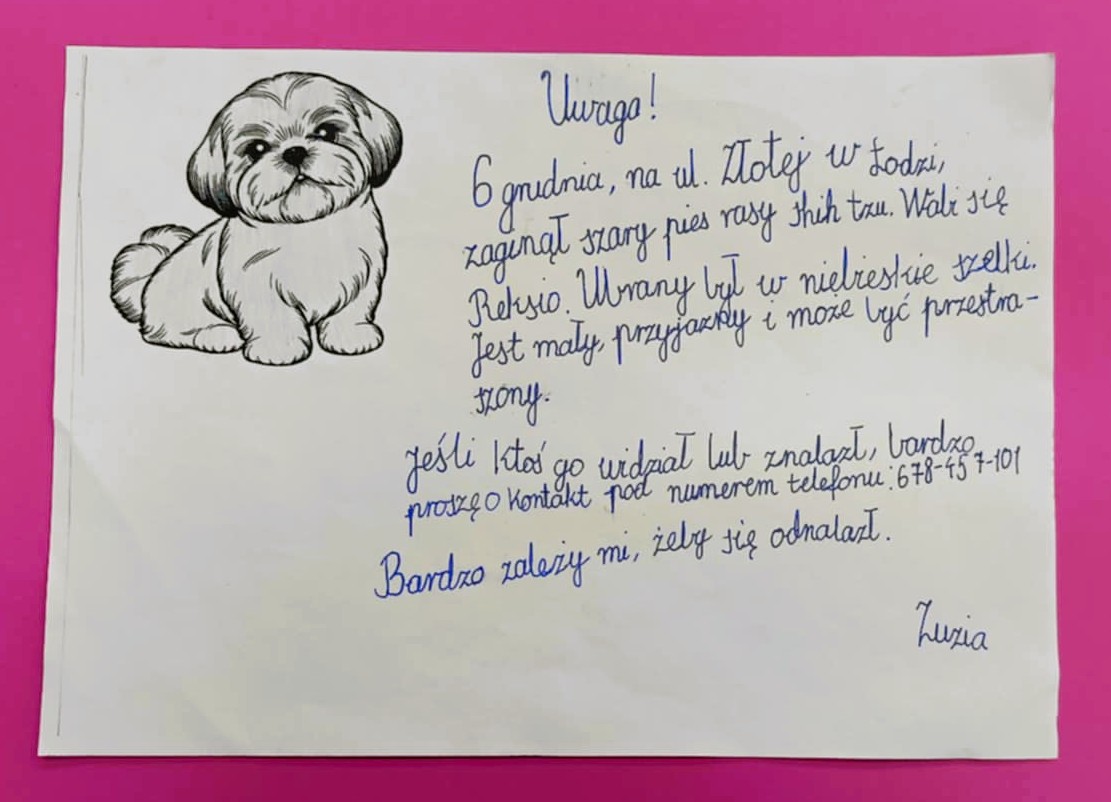 Uwaga!
6 grudnia, na ul. Złotej w Łodzi,
zaginął szary pies rasy shih tzu. Wabi się
Reksio. Ubrany był w niebieskie szelki.
Jest mały, przyjazny i może być przestra-
szony.
Jeśli ktoś go widział lub znalazł, bardzo
proszę o kontakt pod numerem telefonu: 678-457-101
Bardzo zależy mi, żeby się odnalazł.
Zuzia